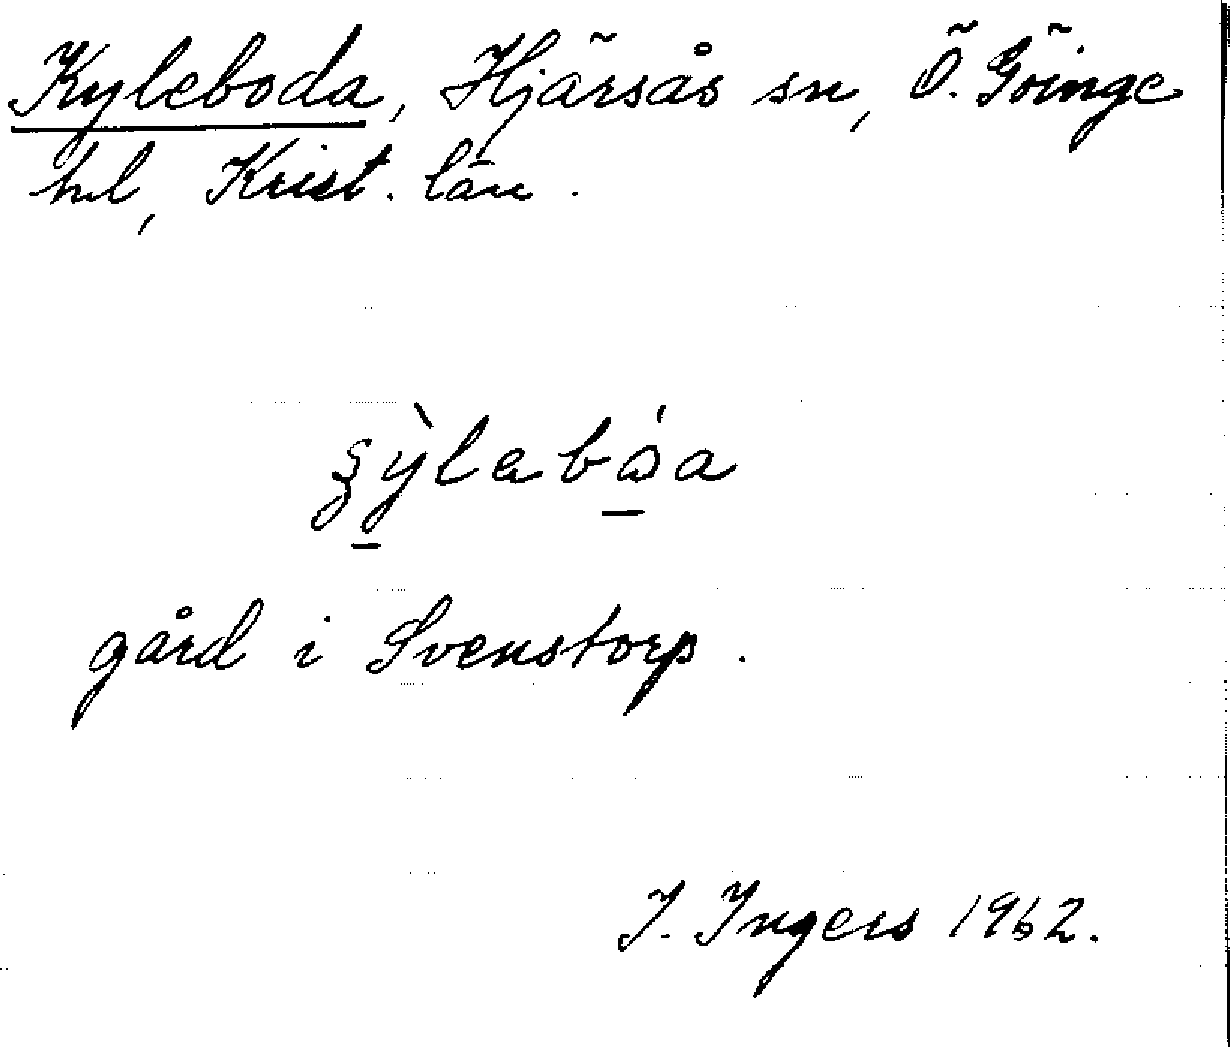 Kyleboda, Hjärsås sn, Ö. Göinge
hd, Krist. län.
gård i Svenstorp.
I. Ingers 1962.